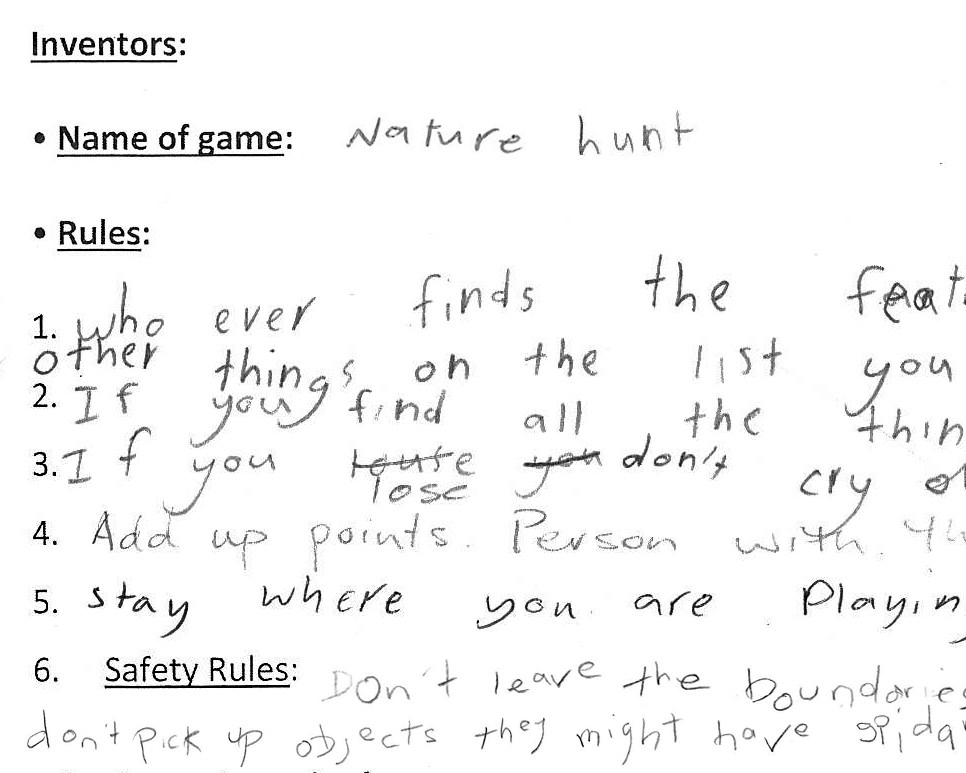 Inventors:
• Name of game: Nature hunt
• Rules:
1. who ever finds the
other things on the list you
2. If you find all the thin
3. If you lose don't cry
4. Add up points. Person with. th
5. stay where you are Playin
6. Safety Rules: Don't leave the boundaries
don't pick up objects they might have spida